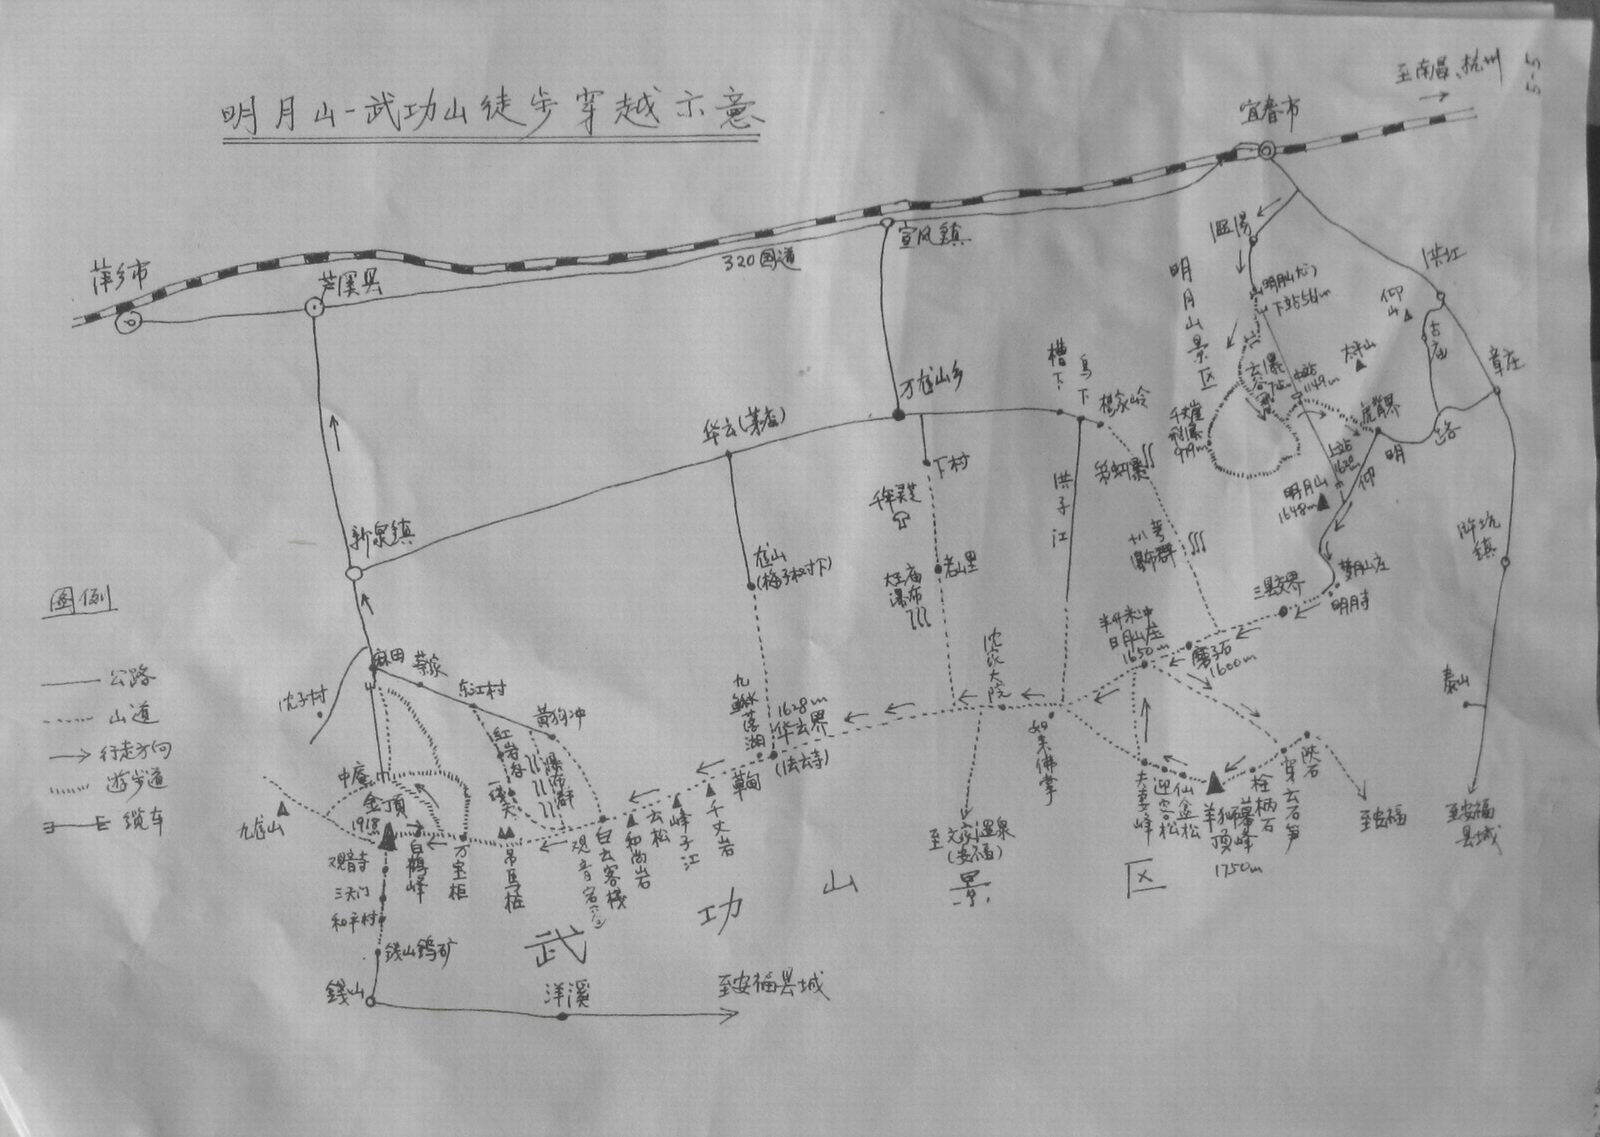 明月山-武功山徒步穿越示意
至南昌、杭州
5-5
宜春市
萍乡市
芦溪县
320国道
宣风镇
温汤
洪江
明月山景区
下站556m
仰山
古庙
章庄
大平山
云谷瀑
中站1149m
虎背界
上站
明月山
1648m
仰
明
路
梦月山庄
明月寺
三县交界
泰山
至安福县城
槽下
乌下
杨家岭
洪子江
瀑布群
万龙山乡
下村
千年灵芝
大王庙瀑布
华云(茅店)
龙山
(梅子树下)
新泉镇
沈家大院
日月山庄
1650m
磨子石
1600m
如来佛掌
夫妻峰
迎客松
仙金松
羊狮幕顶峰
1750m
栓柄石
穿云石笋
陕石
至安福
至文家温泉(安福)
图例
公路
山道
行走方向
游步道
缆车
沈子村
麻田
蔡家
东江村
黄狗冲
红岩谷
瀑布群
一线天
九龙山
中庵
金顶
1918
观音寺
三天门
和平村
白鹤峰
万宝柜
吊马桩
观音宕
白云客栈
和尚岩
云松
峰子江
千丈岩
草甸
九龙落湖
1628m
华云界
(法云寺)
钱山钨矿
钱山
洋溪
至安福县城
武功山景区